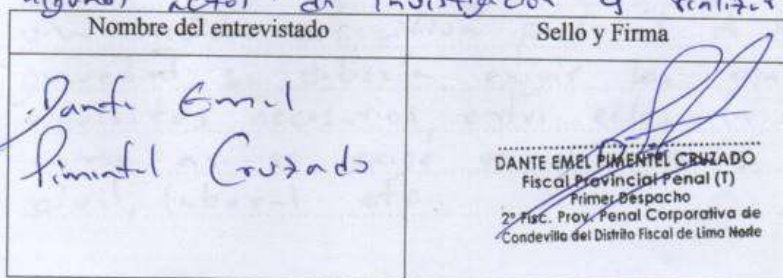 algunos actos de investigación y realizar
Nombre del entrevistado
Sello y Firma
Dante Emel
Pimentel Cruzado
DANTE EMEL PIMENTEL CRUZADO
Fiscal Provincial Penal (T)
Primer Despacho
2° Fisc. Prov. Penal Corporativa de
Condevilla del Distrito Fiscal de Lima Norte